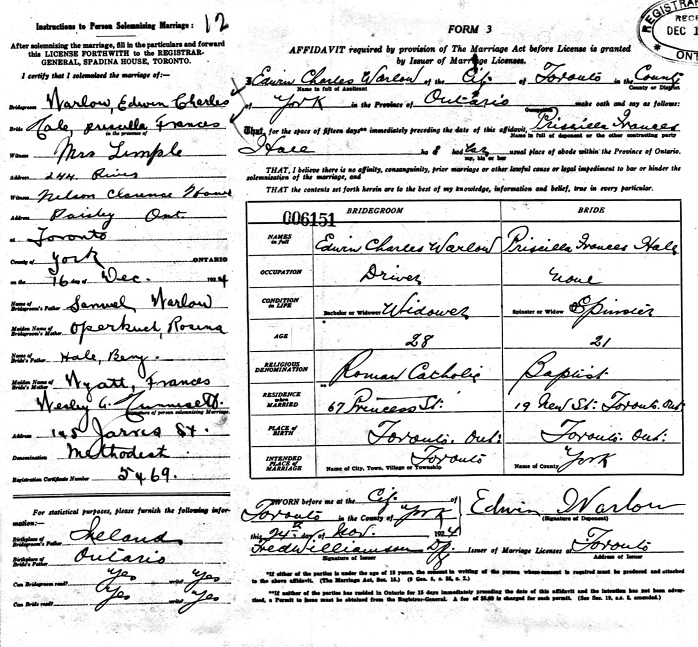 Instructions to Person Solemnizing Marriage:
12
After solemnizing the marriage, fill in the particulars and forward
this LICENSE FORTHWITH to the REGISTRAR-
GENERAL, SPADINA HOUSE, TORONTO.
I certify that I solemnized the marriage of:—
Bridegroom Warlow, Edwin Charles
Bride Hale, Priscilla Frances
in the presence of
Witness Mrs Limple
Address 244
Witness Nelson Clarence
Address Paisley Ont
at Toronto
County of York ONTARIO
on the 16 day of Dec. 1924
Name of Bridegroom's Father Samuel Warlow
Maiden Name of Bridegroom's Mother Rosena
Name of Bride's Father Hale, Benj.
Maiden Name of Bride's Mother Wyatt, Frances
Wesley G.
Signature of person solemnizing Marriage
Address 145 Jarvis St.
Denomination Methodist
Registration Certificate Number 5469.
For statistical purposes, please furnish the following infor-
mation:—
Birthplace of Bridegroom's Father Ireland
Birthplace of Bride's Father Ontario
Can Bridegroom read? Yes write? Yes
Can Bride read? Yes write? Yes
FORM 3
REGISTRAR
RECE
DEC 1
ONT
AFFIDAVIT required by provision of The Marriage Act before License is granted
by Issuer of Marriage Licenses.
I Edwin Charles Warlow of the City of Toronto in the County
Name in full of Applicant
County or District
of York in the Province of Ontario make oath and say as follows:
Occupation
That, for the space of fifteen days** immediately preceding the date of this affidavit, Priscilla Frances
Name in full of deponent or the other contracting party
Hale has had her usual place of abode within the Province of Ontario.
my, his or her
THAT, I believe there is no affinity, consanguinity, prior marriage or other lawful cause or legal impediment to bar or hinder the
solemnization of the marriage, and
THAT the contents set forth herein are to the best of my knowledge, information and belief, true in every particular.
006151
BRIDEGROOM BRIDE
NAMES in full Edwin Charles Warlow Priscilla Frances Hale
OCCUPATION Driver none
CONDITION in LIFE Bachelor or Widower Widower Spinster or Widow Spinster
AGE 28 21
RELIGIOUS DENOMINATION Roman Catholic Baptist
RESIDENCE when MARRIED 67 Princess St. 19 New St. Toronto. Ont
PLACE OF BIRTH Toronto. Ont: Toronto. Ont:
INTENDED PLACE OF MARRIAGE Toronto York
Name of City, Town, Village or Township Name of County
SWORN before me at the City of
Toronto in the County of York
this 24th day of Nov. 1924
Fred Williamson
Signature of Issuer
Edwin Warlow
(Signature of Deponent)
Issuer of Marriage Licenses at Toronto
Address of Issuer
*If either of the parties is under the age of 18 years, the consent in writing of the person whose consent is required must be produced and attached
to the above affidavit. (The Marriage Act, Sec. 15.)
**If neither of the parties has resided in Ontario for 15 days immediately preceding the date of this affidavit and the intention has not been adver-
tised, a Permit to Issue must be obtained from the Registrar-General. A fee of $5.00 is charged for each permit. (See Sec. 19, s.s. 2, amended.)